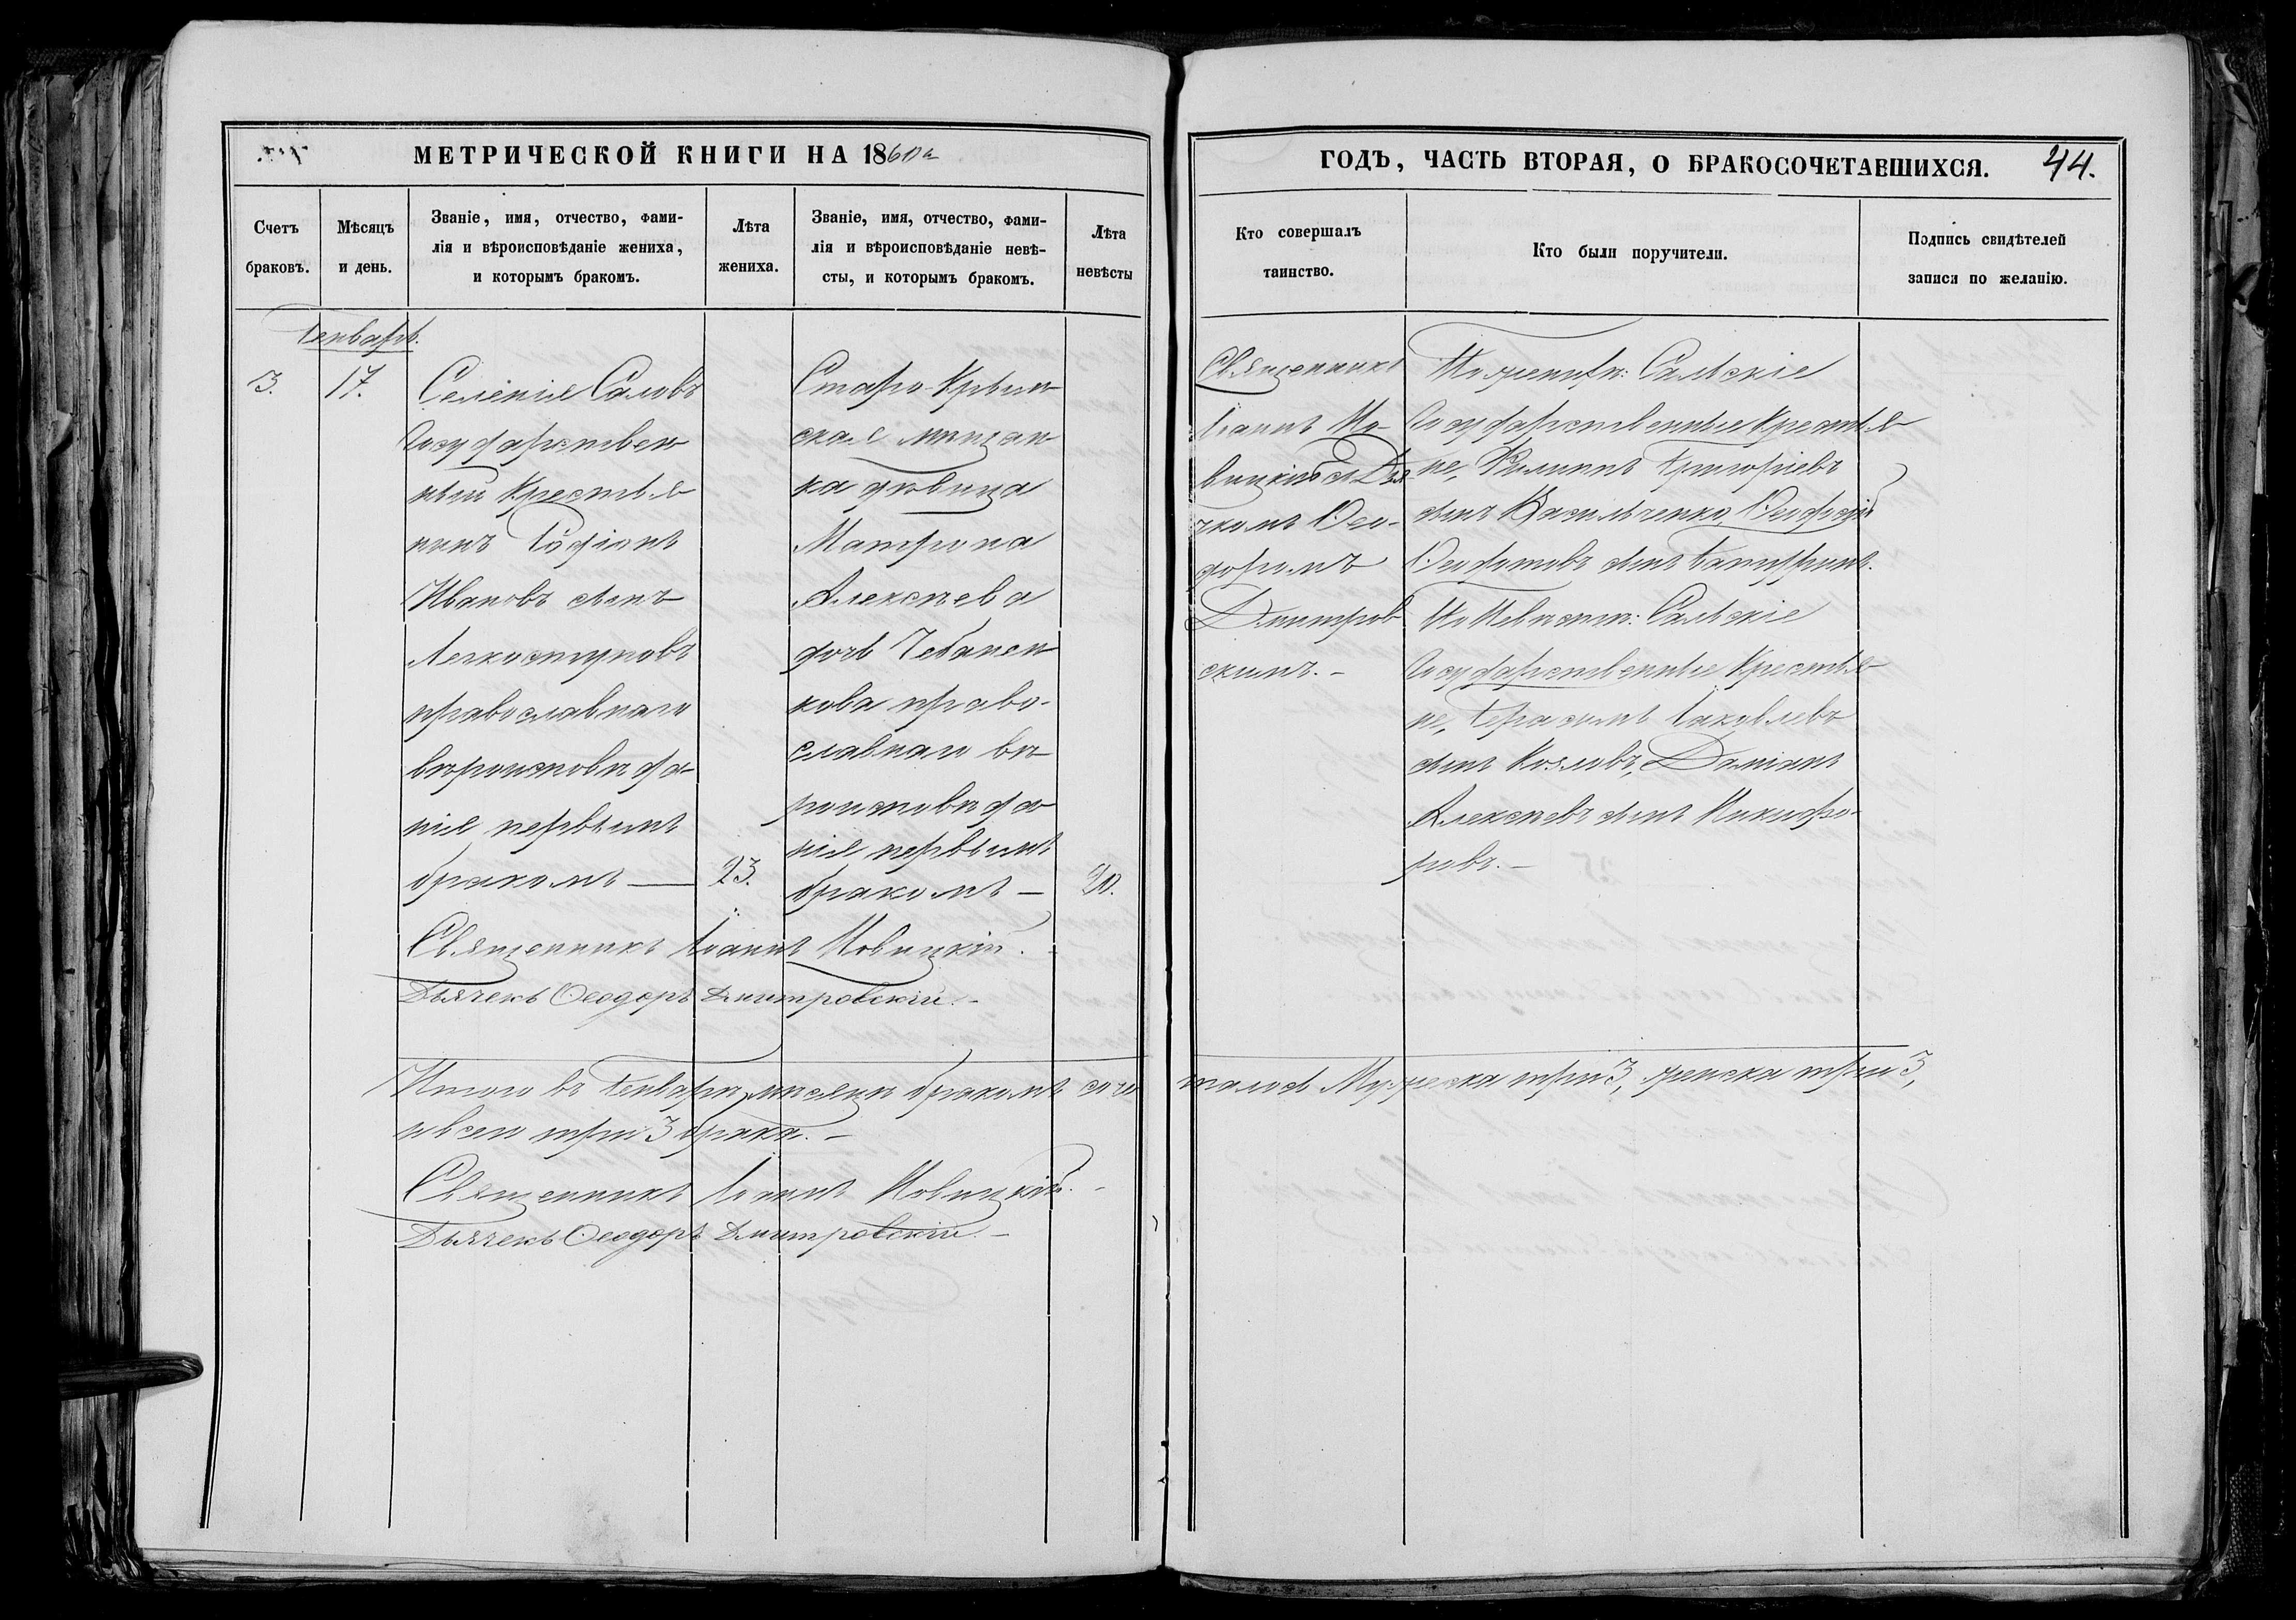 МЕТРИЧЕСКОЙ КНИГИ НА 1860й
ГОДЪ, ЧАСТЬ ВТОРАЯ, О БРАКОСОЧЕТАВШИХСЯ. 44.
Счетъ
браковъ.
Мѣсяцъ
и день.
Званіе, имя, отчество, фами-
лія и вѣроисповѣданіе жениха,
и которымъ бракомъ.
Лѣта
жениха.
Званіе, имя, отчество, фами-
лія и вѣроисповѣданіе невѣ-
сты, и которымъ бракомъ.
Лѣта
невѣсты
Кто совершалъ
таинство.
Кто были поручители.
Подпись свидѣтелей
записи по желанію.
Генварь.
3.
17.
Селенія Саловъ
Государствен
ный Крестья
нинъ
Ивановъ сынъ
Легкоступовъ
православнаго
вѣроисповѣда-
нія первымъ
бракомъ —
23.
Старо-Крым
ская мѣщан
ка дѣвица
Матрона
Алексѣева
дочь Чебанен
кова право-
славнаго вѣ
роисповѣда
нія первымъ
бракомъ —
20.
Священникъ
Іоаннъ Но-
вицкій съ Дья
чкомъ Ѳео-
доромъ
Дмитров
скимъ. -
По женихѣ: Сальскіе
Государственные Крестья
не, Филиппъ Григоріевъ
сынъ Васильченко, Ѳеодосій
Ѳедотовъ сынъ
По Невѣстѣ: Сальскіе
Государственные Крестья
не, Герасимъ Іаковлевъ
сынъ Козловъ, Даміанъ
Алексѣевъ сынъ Никифо-
ровъ. —
Священникъ Іоаннъ Новицкій. -
Дьячекъ Ѳеодоръ Дмитровскій. -
Итого въ Генварѣ мѣсяцѣ бракомъ соче
талось Мужеска три 3, женска три 3,
а всего три 3 брака. —
Священникъ Іоаннъ Новицкій. -
Дьячекъ Ѳеодоръ Дмитровскій. —